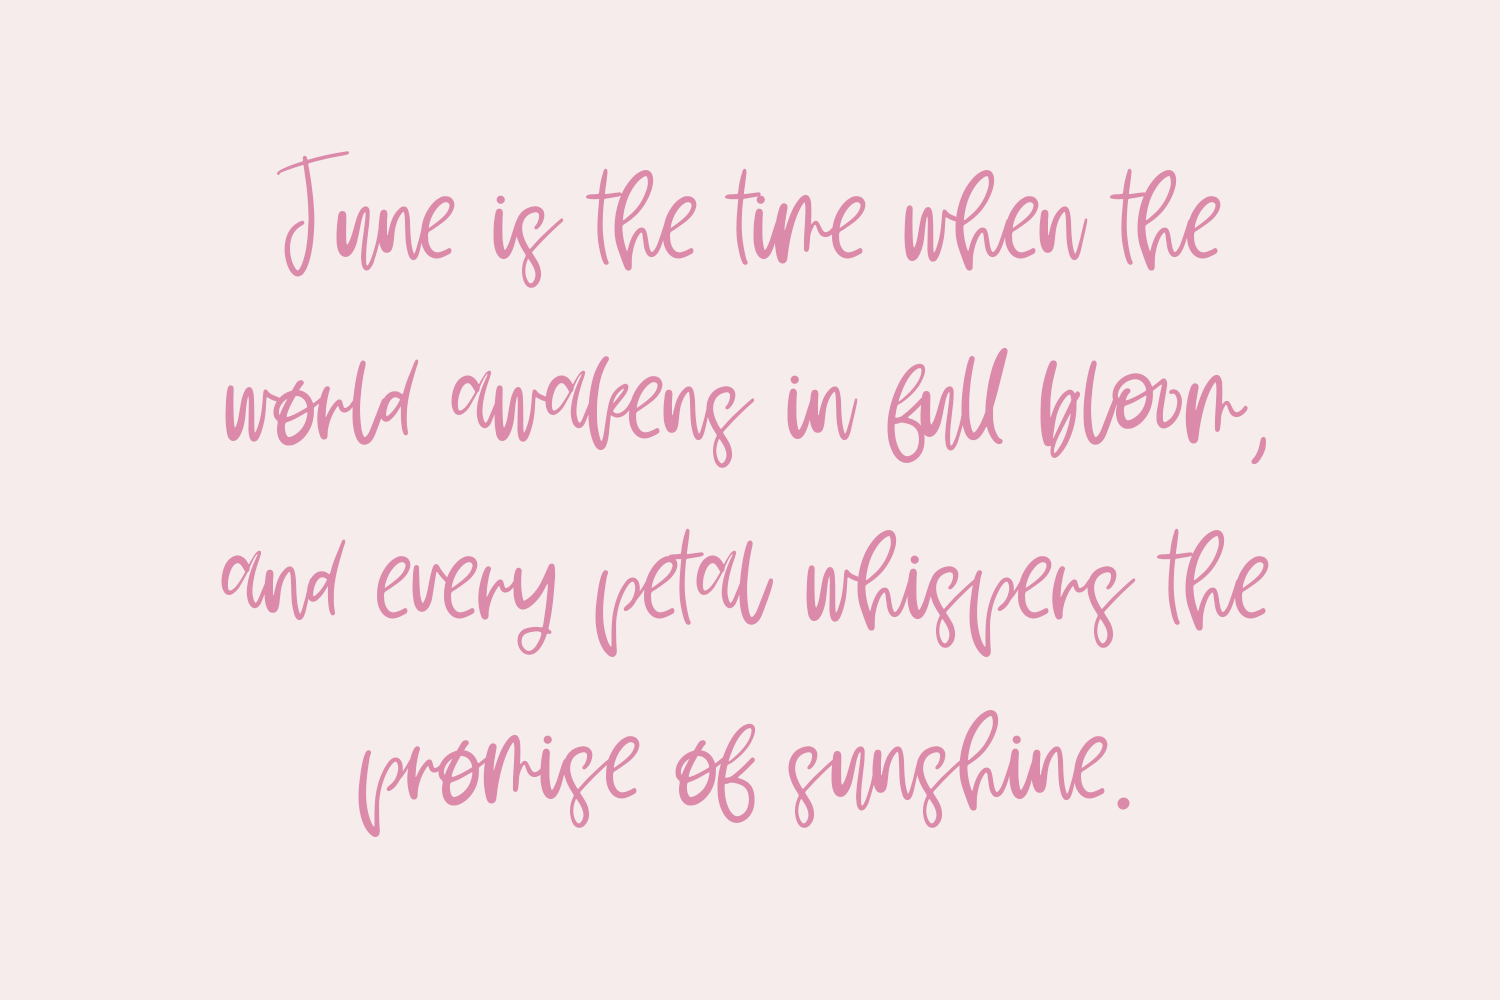 June is the time when the
world awakens in full bloom,
and every petal whispers the
promise of sunshine.